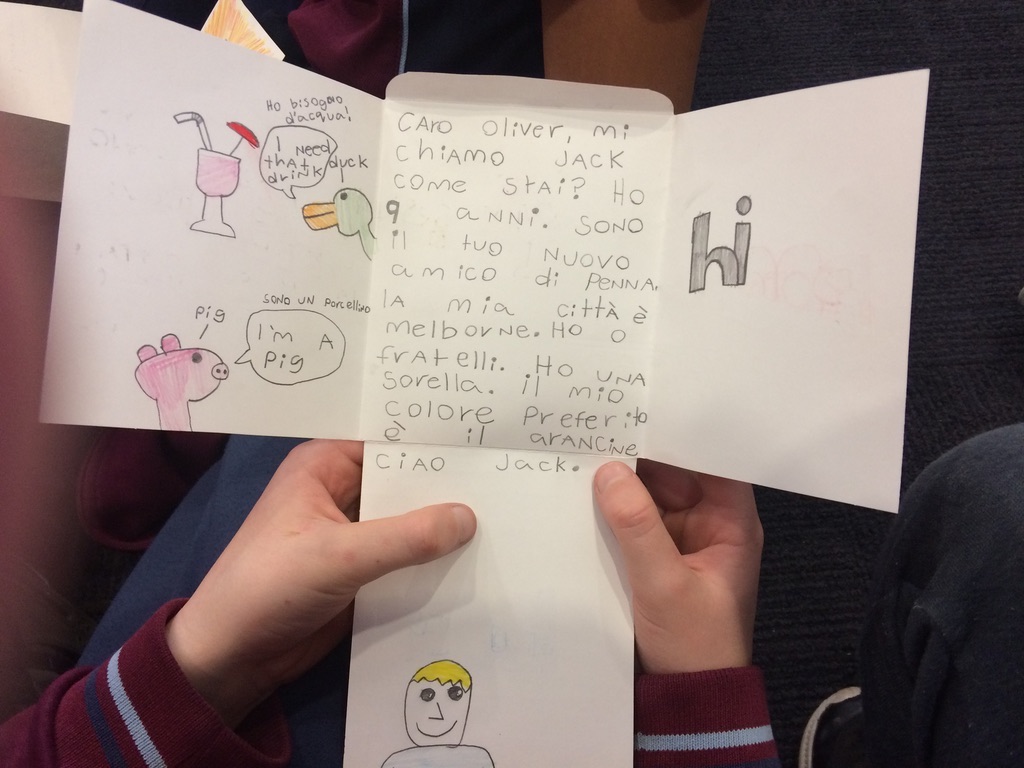 Ho bisogno
d'acqua!
I need
that
drink
duck
sono un porcellino
pig
I'm A
pig
CAro oliver, mi
chiamo JACK
come stai? Ho
9 anni. Sono
il tuo nuovo
amico di Penna.
lA mia città è
melborne. Ho 0
frAtelli. Ho una
sorella. il mio
colore Preferito
è il arANCiNe
ciao Jack.
hi